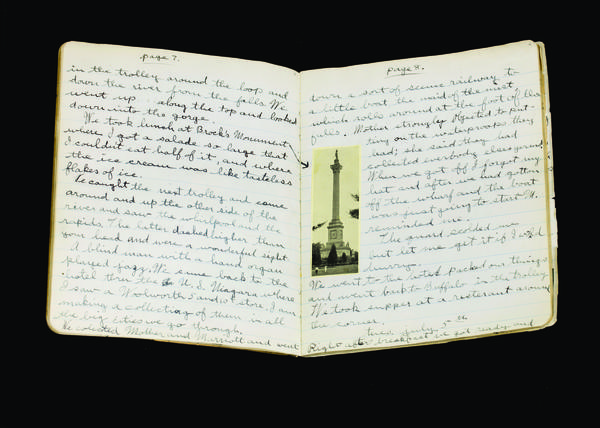 page 7.
in the trolley around the loop and
down the river from the falls. We
went up along the top and looked
down into the gorge.
We took lunch at Brock's Monument
where I got a salade so huge that
I couldn't eat half of it, and where
the ice cream was like tasteless
flakes of ice.
We caught the next trolley and came
around and up the other side of the
river and saw the whirlpool and the
rapids. The latter dashed higher than
you head and were a wonderful sight.
A blind man with a hand organ
played jazz. We came back to the
hotel thru the N. Y. Niagara where
I saw a Woolworth 5 and 10¢ store. I am
making a collection of them in all
the big cities we go through.
We collected Mother and Marriott and went
page 8.
down a sort of scenic railway to
a little boat the maid of the mist,
which rolls around at the foot of the
falls. Mother strongly objected to put-
ting on the waterproofs they
had; she said they had
collected everybody elses germs.
When we got off I forgot my
hat and after we had gotten
off the wharf and the boat
was just going to start M.
reminded me.
The guard scolded me
but let me get it if I wld
hurry.
We went to the hotel packed our things
and went back to Buffalo in the trolley
We took supper at a resterant around
the corner.
tues July 5th
Right after breakfast we got ready and